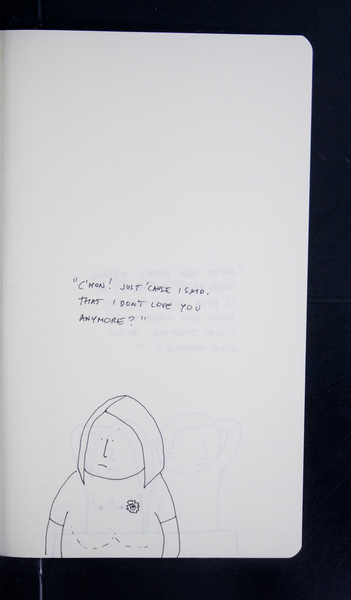 "C'MON! JUST 'CAUSE I SAID.
THAT I DON'T LOVE YOU
ANYMORE?"